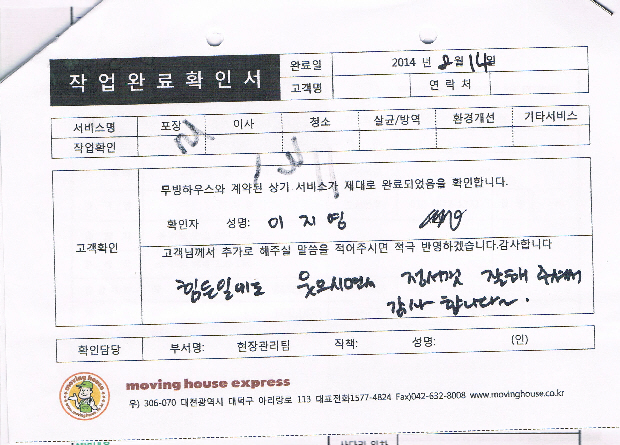 작업완료확인서
완료일 2014 년 8월 14일
고객명 연 락 처
서비스명 포장 이사 청소 살균/방역 환경개선 기타서비스
작업확인
고객확인
무빙하우스와 계약된 상기 서비스가 제대로 완료되었음을 확인합니다.
확인자 성명: 이지영
고객님께서 추가로 해주실 말씀을 적어주시면 적극 반영하겠습니다.감사합니다
힘든일에도 웃으시면서 정성껏 잘해 주셔서
감사 합니다~.
확인담당 부서명: 현장관리팀 직책: 성명: (인)
moving house
moving house express
우) 306-070 대전광역시 대덕구 아리랑로 113 대표전화1577-4824 Fax)042-632-8008 www.movinghouse.co.kr